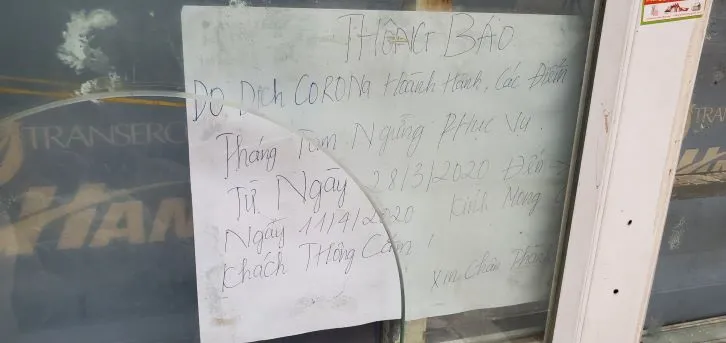 THÔNG BÁO
DO Dịch CORONA Hoành Hành, Các Điểm
Tháng Tạm Ngừng Phục Vụ.
Từ Ngày 28/3/2020 Đến
Ngày 11/4/2020 Kính Mong
Khách Thông Cảm !
Xin Chân Thàn
TRANSERC